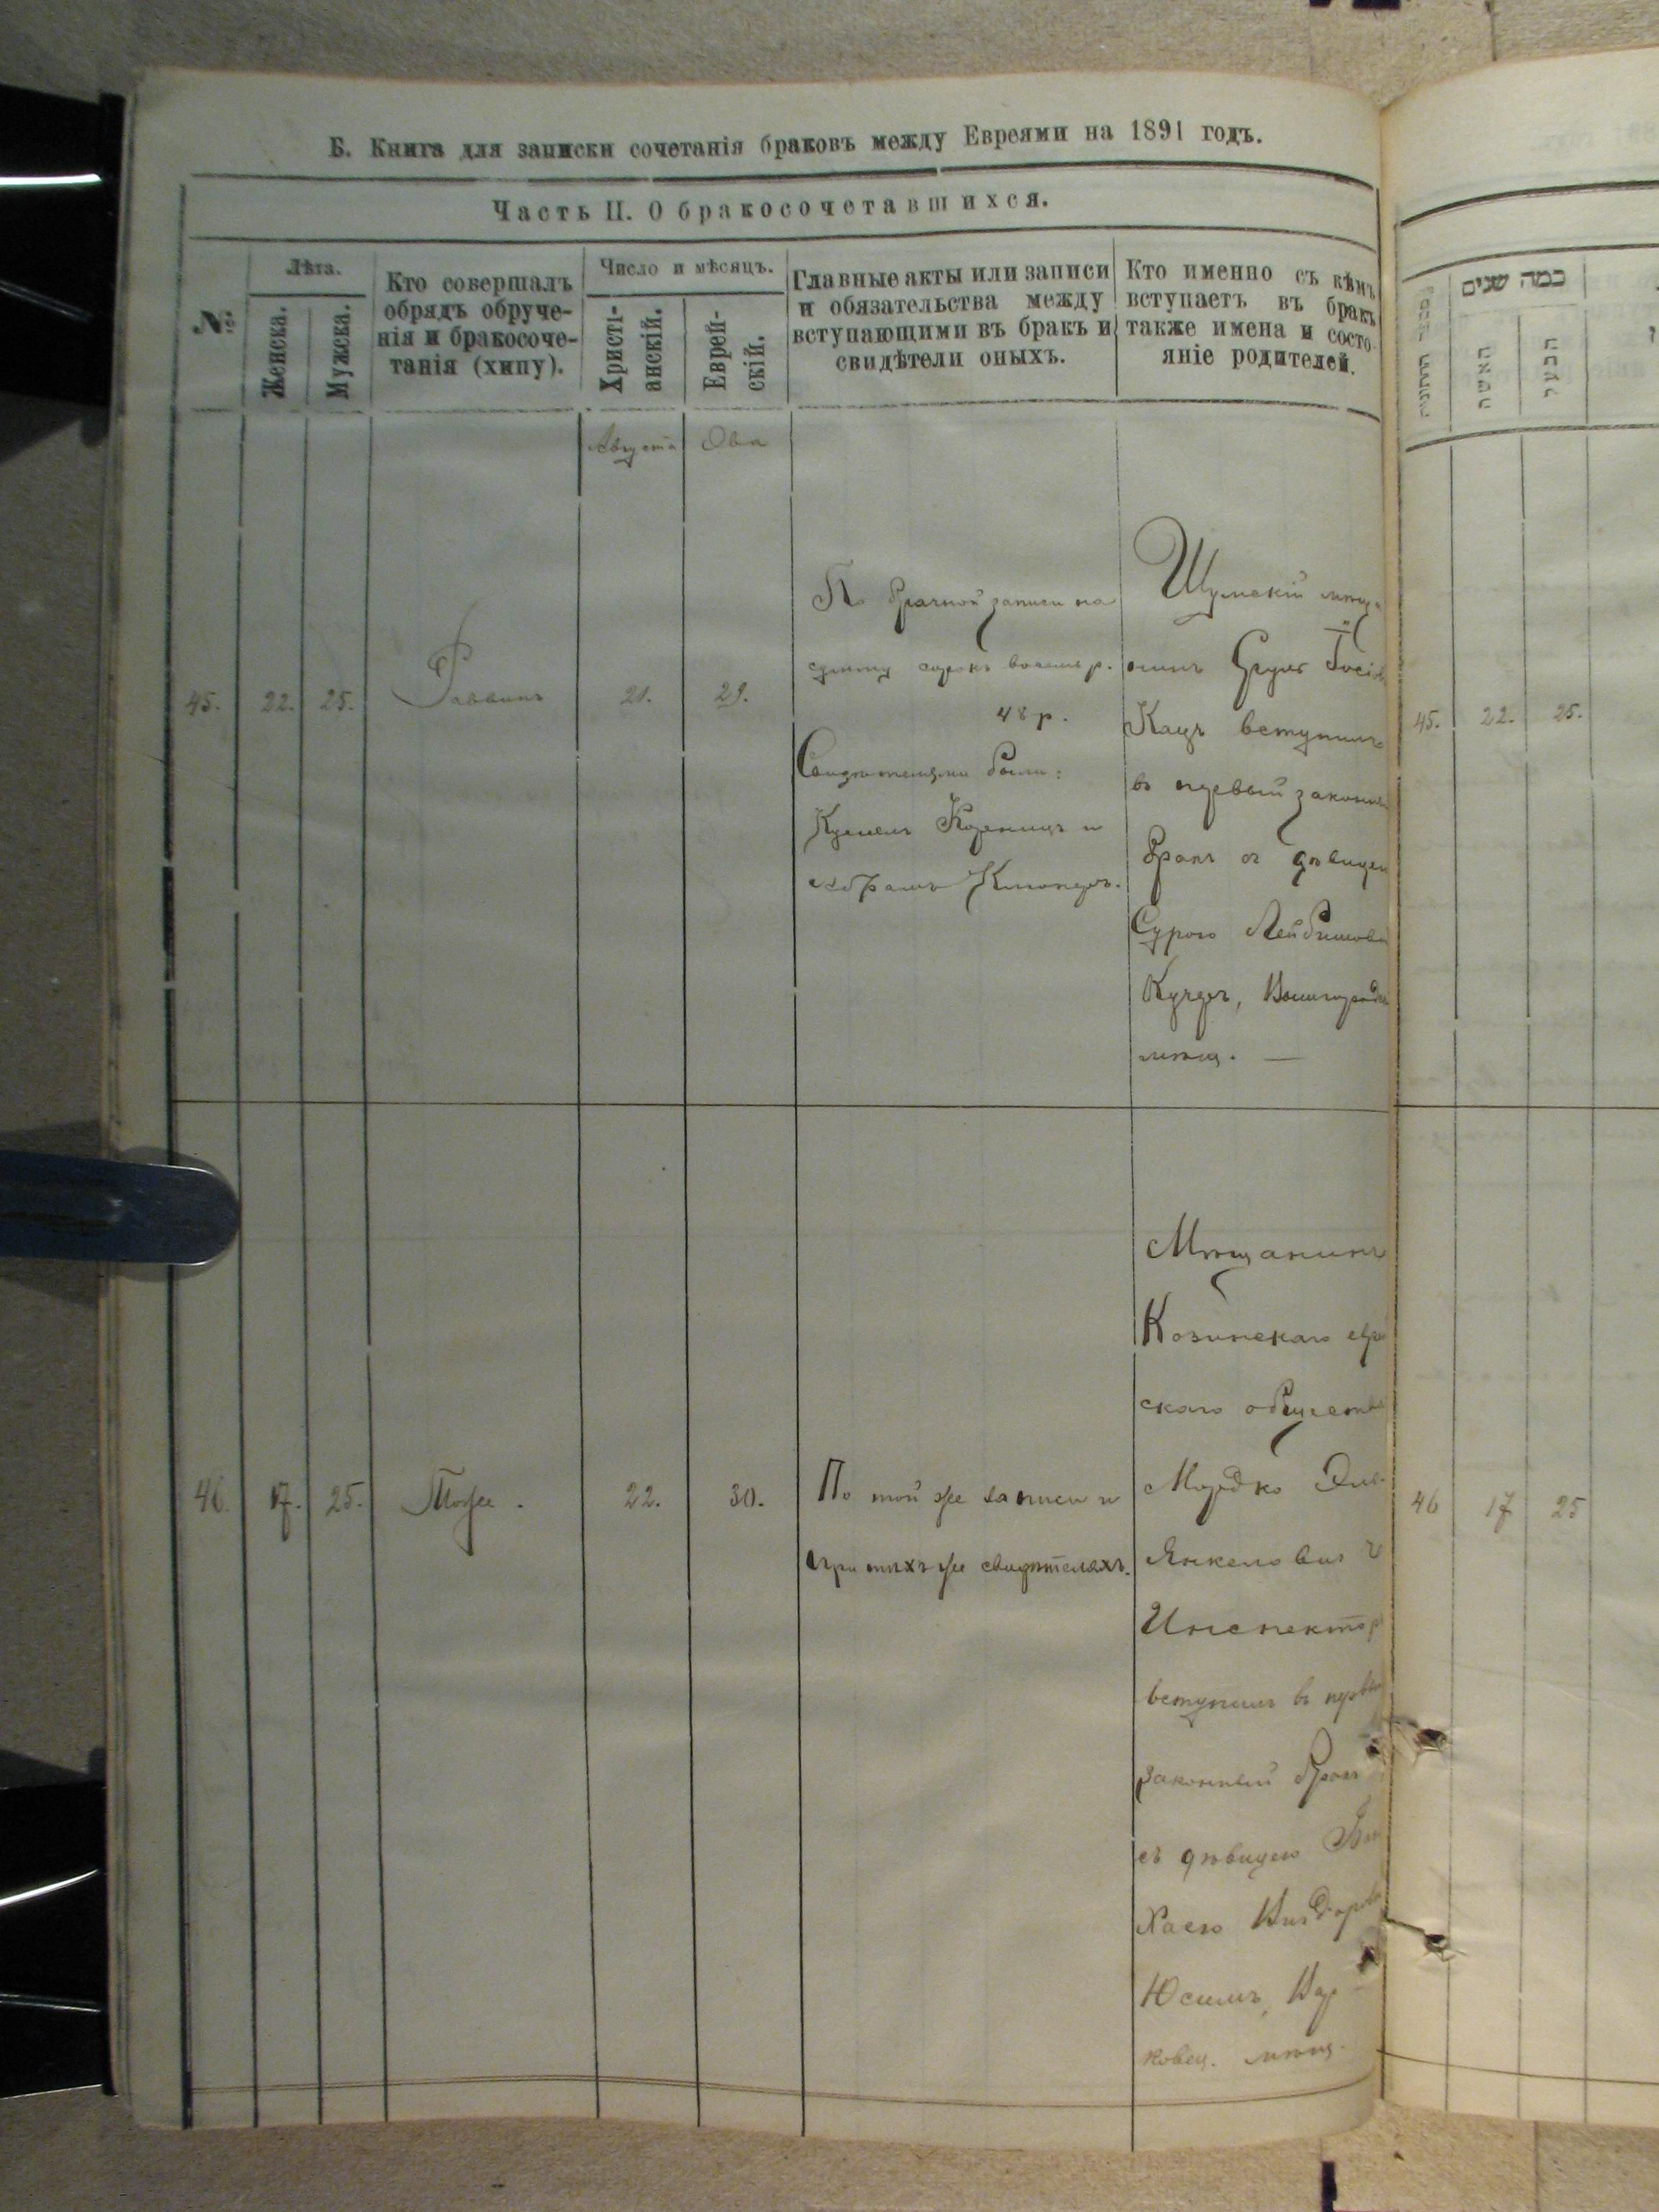 Б. Книга для записки сочетанія браковъ между Евреями на 1891 годъ.
Часть II. О бракосочетавшихся.
№
Лѣта.
Женска.
Мужска.
Кто совершалъ
обрядъ обруче-
нія и бракосоче-
танія (хипу).
Число и мѣсяцъ.
Христі-
анскій.
Еврей-
скій.
Главные акты или записи
и обязательства между
вступающими въ бракъ и
свидѣтели оныхъ.
Кто именно съ кѣмъ
вступаетъ въ бракъ
также имена и состо-
яніе родителей.
Августа
Ова
45.
22.
25.
Раввинъ
21.
29.
По брачной записи на
сумму сорокъ восемь р.
48 р.
Свидѣтелями были:
и
Абрамъ
Шумскій мѣщ-
анинъ
Кацъ вступилъ
въ первый законный
бракъ съ дѣвицею
Сурою Лейбишовой
мѣщ. —
46.
17.
25.
Тоже.
22.
30.
По той же записи и
при тѣхъ же свидѣтеляхъ.
Мѣщанинъ
Козинскаго евре
скаго общества
Мордко Эль-
Янкеловичъ
Инспекторъ
вступилъ въ первый
законный бракъ
съ дѣвицею
Хаею
Юсимъ,
ковец. мѣщ.
כמה שנים
האשה
הבעל
45.
22.
25.
46
17
25